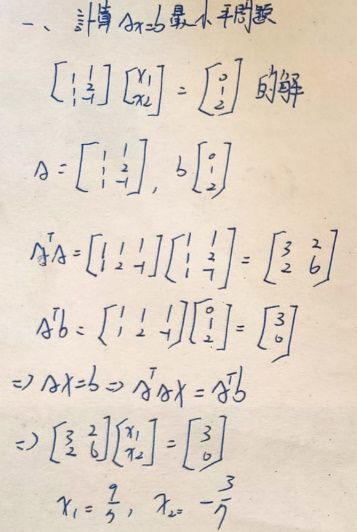 一、計算 Ax=b 最小平問題
[1 1; 1 2; 1 -1] [x₁; x₂] = [0; 1; 2] 的解
A = [1 1; 1 2; 1 -1], b [0; 1; 2]
AᵀA = [1 1 1; 1 2 -1] [1 1; 1 2; 1 -1] = [3 2; 2 6]
Aᵀb = [1 1 1; 1 2 -1] [0; 1; 2] = [3; 0]
=> Ax=b => AᵀAx = Aᵀb
=> [3 2; 2 6] [x₁; x₂] = [3; 0]
x₁ = 9/7, x₂ = -3/7